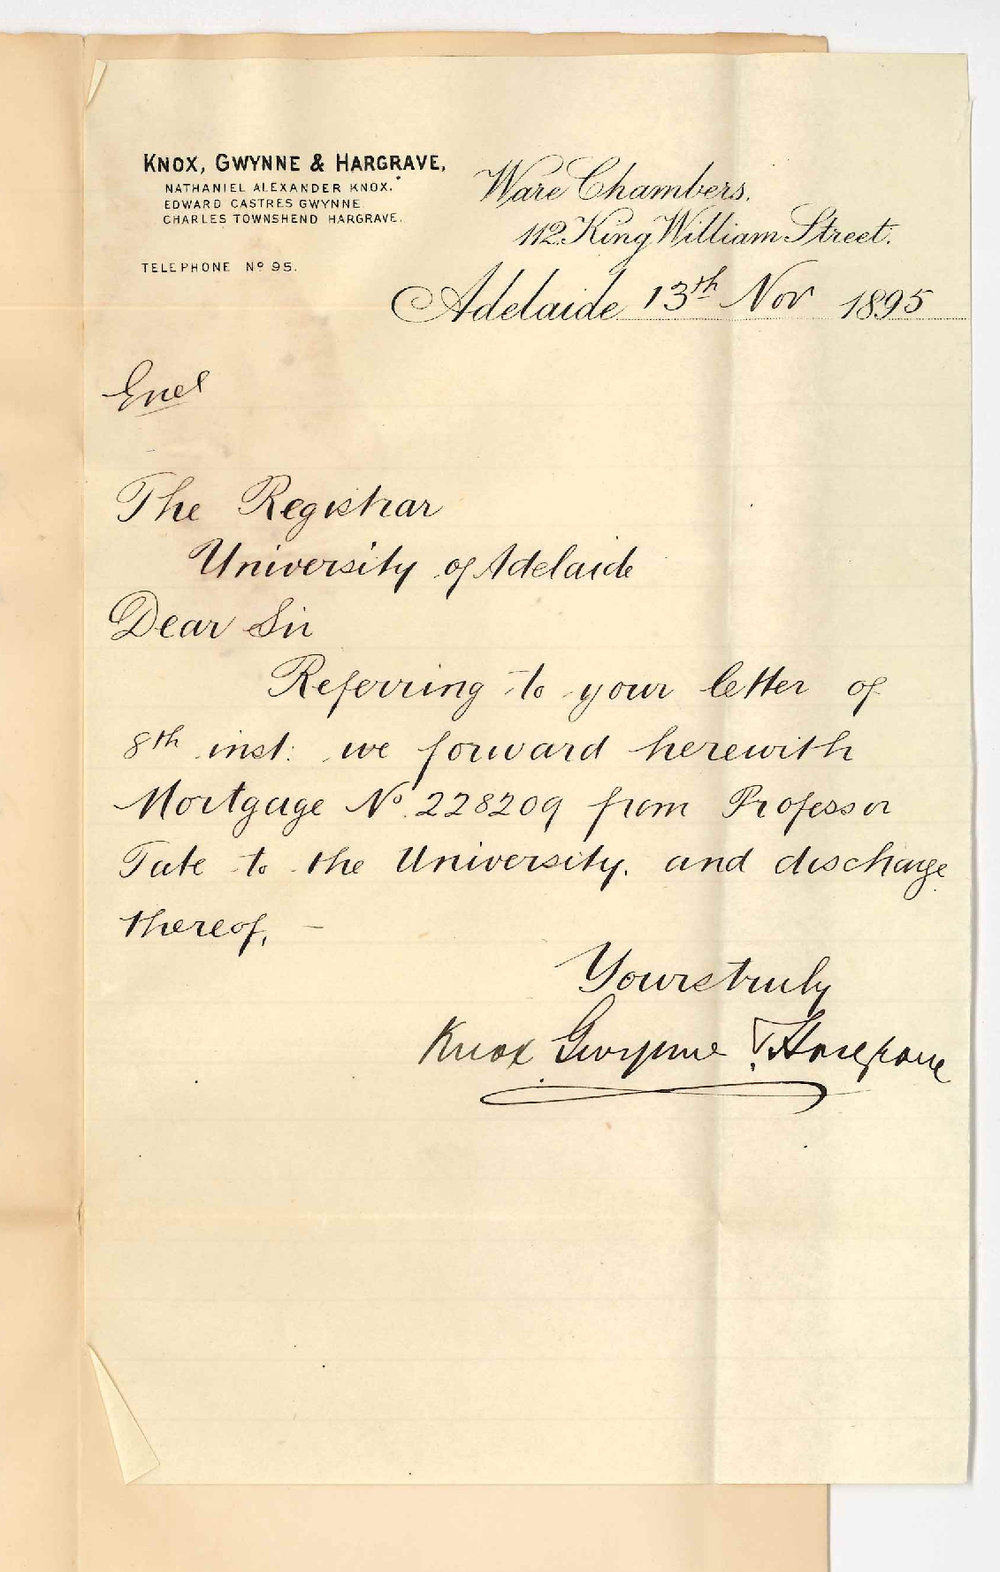 KNOX, GWYNNE & HARGRAVE,
NATHANIEL ALEXANDER KNOX.
EDWARD CASTRES GWYNNE
CHARLES TOWNSHEND HARGRAVE.
TELEPHONE Nº 95.
Ware Chambers.
112 King William Street.
Adelaide 13th Nov 1895
Encl
The Registrar
University of Adelaide
Dear Sir
Referring to your letter of
8th inst: we forward herewith
Mortgage No. 228209 from Professor
Tate to the University. and discharge
thereof, –
Yours truly
Knox Gwynne & Hargrave